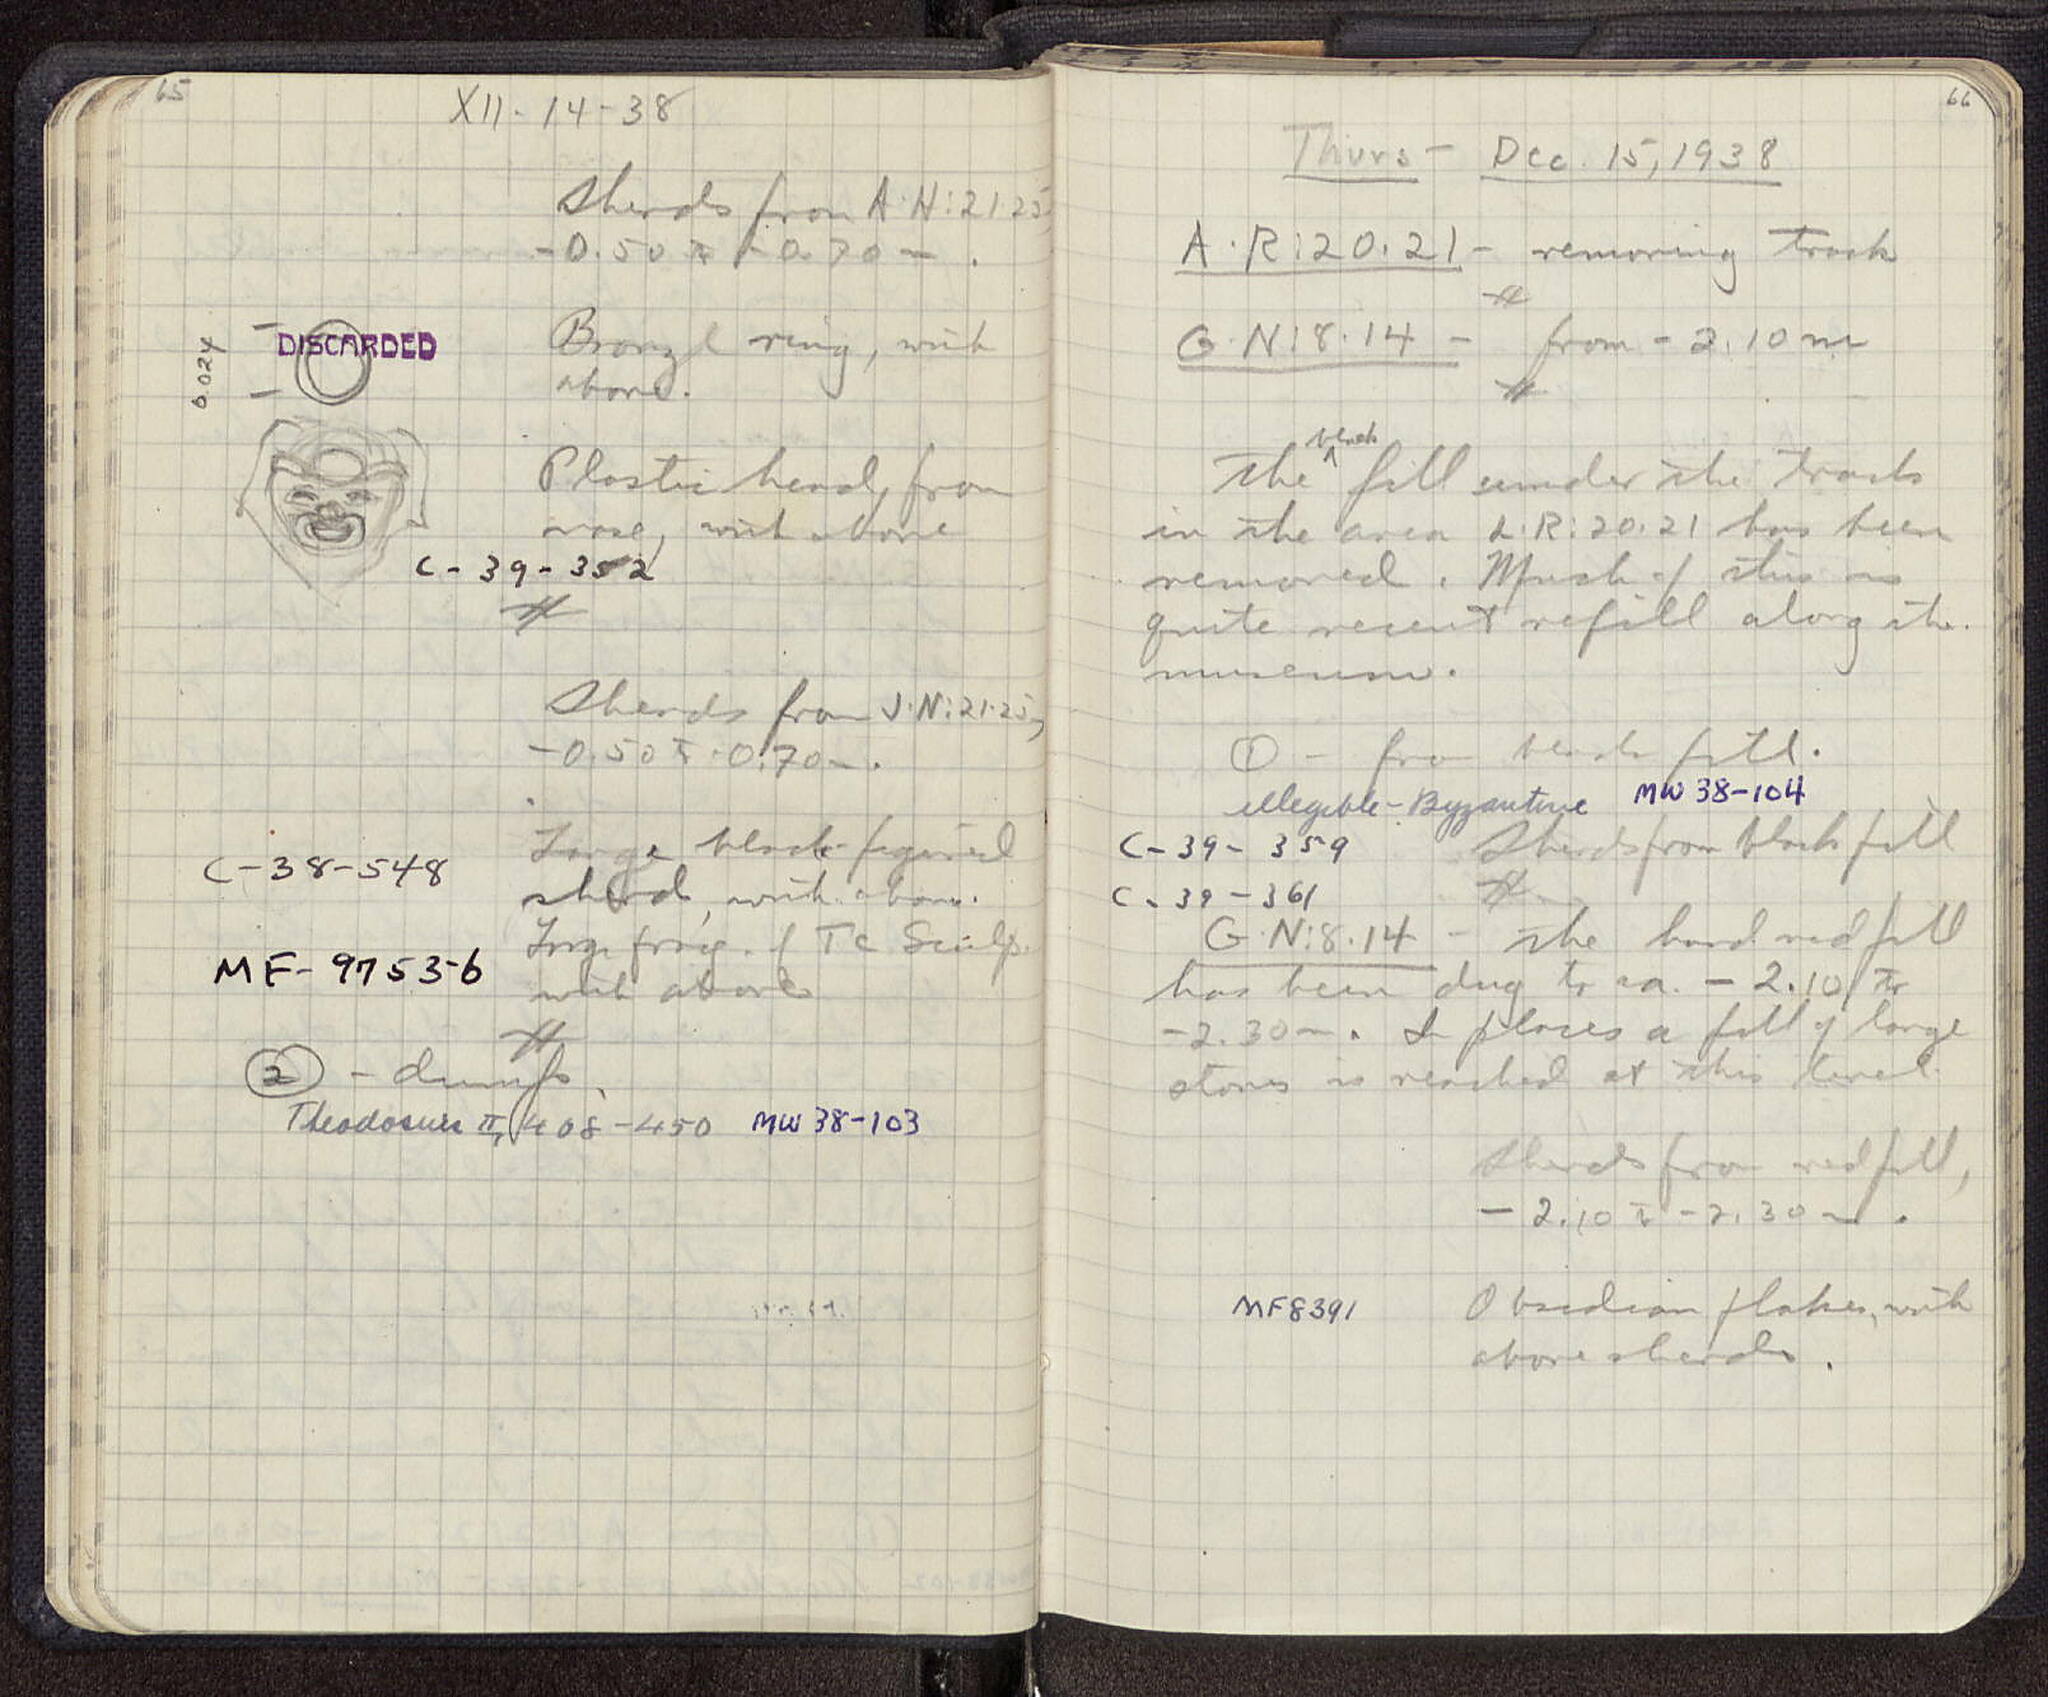 65
XII - 14 - 38
Sherds from A·N:21·25
-0.50 to -0.70 m.
0.024
DISCARDED
Bronze ring, with
above.
Plastic head, from
vase, with above
C - 39 - 352
#
Sherds from J·N:21·25,
-0.50 to -0.70 m.
C-38-548
Large black-figured
sherd, with above.
MF-9753-6
Large frag. of TC Sculp.
with above
#
2 - dump.
Theodosius II, 408-450 MW 38-103
66
Thurs - Dec. 15, 1938
A·R:20·21 - removing track
#
G·N:8·14 - from - 2.10 m
#
The black fill under the tracks
in the area A·R:20·21 has been
removed. Much of this is
quite recent refill along the
museum.
1 - from black fill.
illegible - Byzantine MW 38-104
C - 39 - 359
Sherds from black fill
C - 39 - 361
#
G·N:8·14 - The hard red fill
has been dug to ca. - 2.10 to
-2.30 m. In places a fill of large
stones is reached at this level.
Sherds from red fill,
- 2.10 to -2.30 m.
MF8391
Obsidian flakes, with
above sherds.